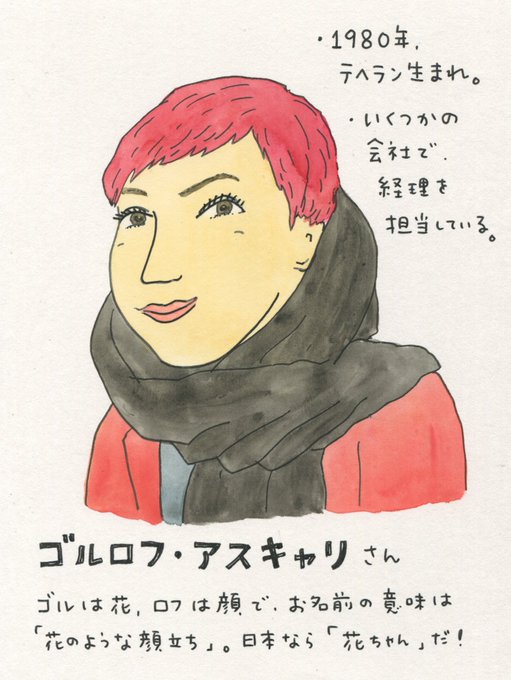 ・1980年、
テヘラン生まれ。
・いくつかの
会社で、
経理を
担当している。
ゴルロフ・アスキャリさん
ゴルは花、ロフは顔で、お名前の意味は
「花のような顔立ち」。日本なら「花ちゃん」だ!